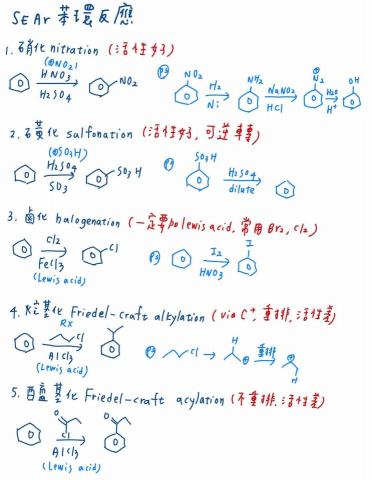 SEAr 苯環反應
1. 硝化 nitration (活性好)
(⊕NO2)
HNO3
H2SO4
NO2
NO2
H2
Ni
NH2
NaNO2
HCl
N2
H2O
H+
OH
2. 磺化 sulfonation (活性好, 可逆轉)
(⊕SO3H)
H2SO4
SO3
SO3H
SO3H
H2SO4
dilute
3. 鹵化 halogenation (一定要加 lewis acid, 常用 Br2, Cl2)
Cl2
FeCl3
(Lewis acid)
Cl
I2
HNO3
I
4. 烷基化 Friedel-craft alkylation (via C+, 重排, 活性差)
RX
Cl
AlCl3
(Lewis acid)
Cl
H
重排
H
5. 醯基化 Friedel-craft acylation (不重排, 活性差)
O
Cl
AlCl3
(Lewis acid)
O